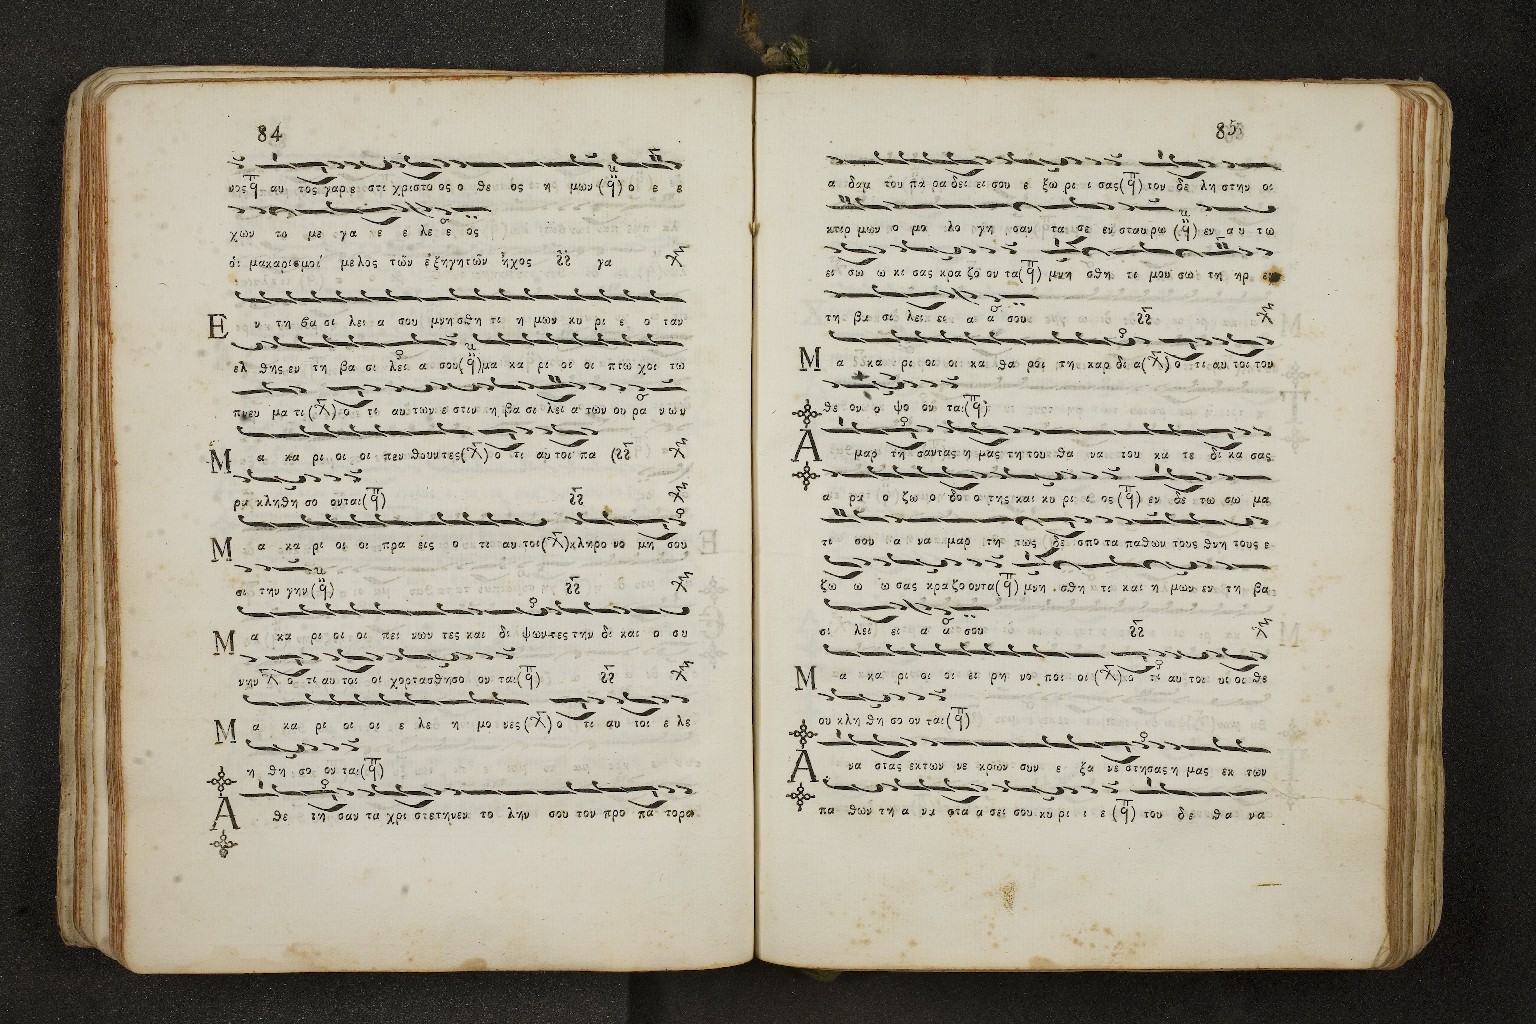 84
νος αυ τος γαρ ε στι χριστο ος ο θε ος η μων ο ε ε
χων το με γα ε ε λε ε ος
ὁι μακαρισμοί μελος τῶν ἐξηγητῶν ἠχος γα
Ε ν τη βα σι λει α σου μνησθη τι η μων κυ ρι ε ο ταν
ελ θης εν τη βα σι λει α σου μα κα ρι οι οι πτω χοι τω
πνευ μα τι ο τι αυ των ε στιν η βα σι λει α των ου ρα νων
Μ α κα ρι οι οι πεν θουντες ο τι αυ τοι πα
ρα κληθη σο ονται
Μ α κα ρι οι οι πρα εις ο τι αυ τοι κληρο νο μη σου
σι την γην
Μ α κα ρι οι οι πει νων τες και δι ψωντες την δι και ο συ
νην ο τι αυ τοι οι χορτασθησο ον ται
Μ α κα ρι οι οι ε λε η μο νες ο τι αυ τοι ε λε
η θη σο ον ται
Α θε τη σαν τα χρι στε την εν το λην σου τον προ πα τορα
85
α δαμ του πα ρα δει ει σου ε ξω ρι ι σας τον δε λη στην οι
κτιρ μων ο μο λο γη σαν τα σε εν σταυ ρω εν αυ τω
ει σω ω κι σας κρα ζο ον τα μνη σθη τι μου σω τη ηρ εν
τη βα σι λει ει α α σου
Μ α κα ρι οι οι κα θα ροι τη καρ δι α ο τι αυ τοι τον
θε ον ο ψο ον ται
Α μαρ τη σαντας η μας τη του θα να του κα τε δι κα σας
α ρα ο ζω ο δο ο της και κυ ρι ι ος εν δε τω σω μα
τι σου α να μαρ τη τως δε σπο τα παθων τους θνη τους ε
ζω ω ω σας κρα ζο οντα μνη σθη τι και η μων εν τη βα
σι λει ει α α σου
Μ α κα ρι οι οι ει ρη νο ποι οι ο τι αυ τοι υι οι θε
ου κλη θη σο ον ται
Α να στας εκ των νε κρων συν ε ξα νε στησας η μας εκ των
πα θων τη α να στα α σει σου κυ ρι ι ε του δε θα να